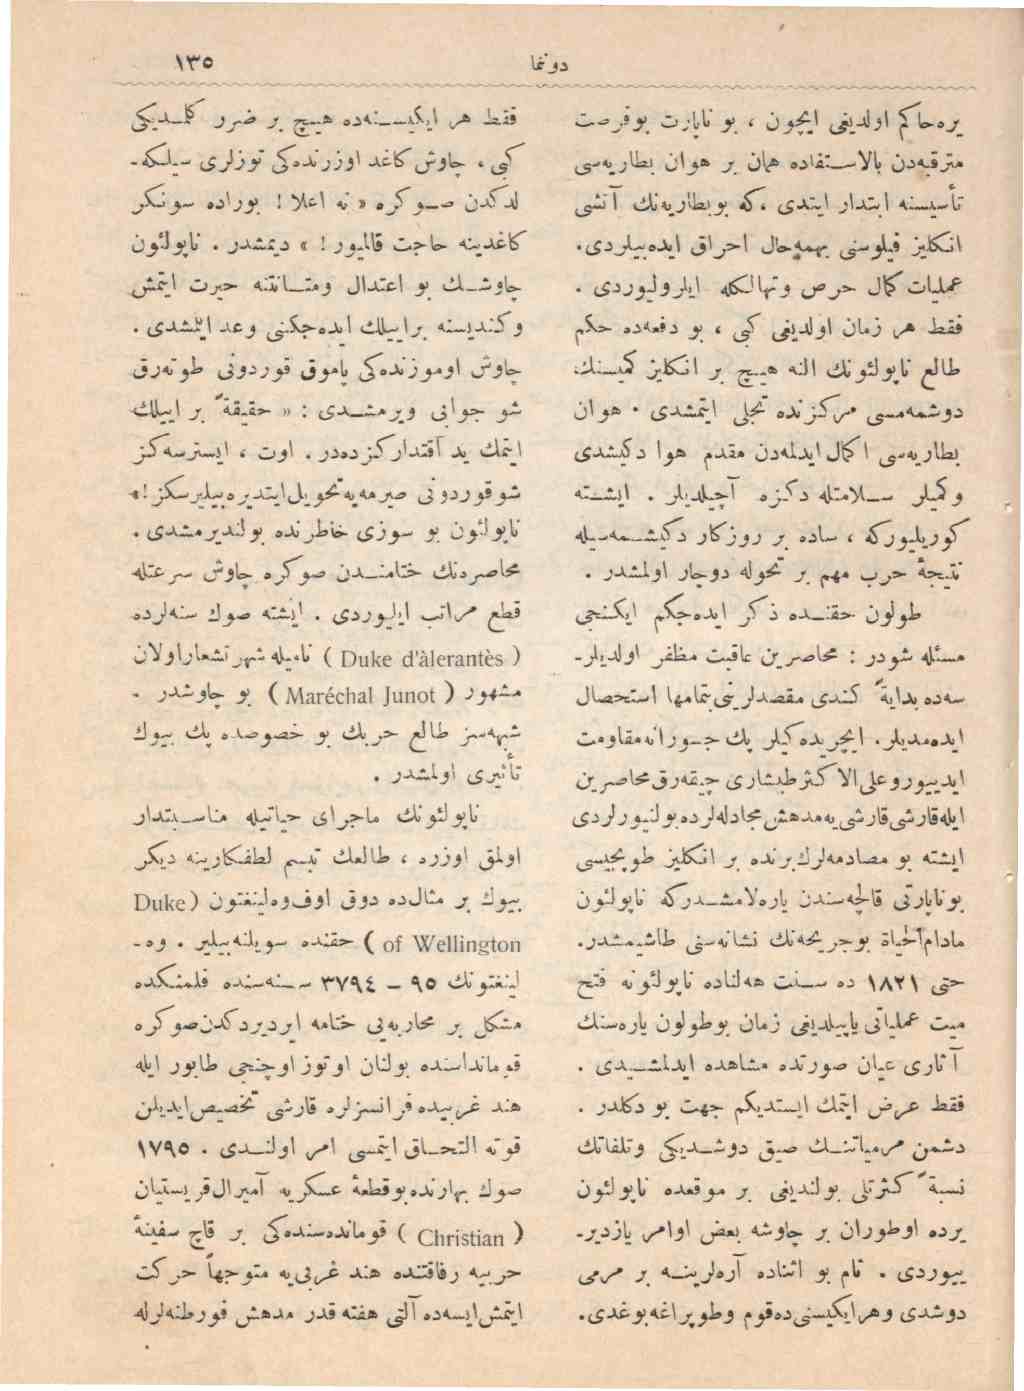 دوننما ١٣٥
يره حاكم اولديغى ايچون ، بو ناپارت بوفرصت
مترقبه‌دن بالاستفاده همان بر هوان بطاريه‌سى
تأسيسنه ابتدار ايتدى ،كه بوبطاريه‌نك آتشى
انكليز فيلوسنى بهمه‌حال احراق ايده‌بيلردى.
عمليات كمال حرص وتهالكله ايلروليوردى .
فقط هر زمان اولديغى كبى ، بو دفعه‌ده حكم
طالع ناپولئونك النه هيچ بر انكليز كميسنك
دوشمه‌مسى مركزنده تجلى ايتمشدى . هوان
بطاريه‌سى اكمال ايدلمه‌دن مقدم هوا دكيشدى
وكميلر سلامتله دكزه آچيلديلر . ايشته
كوريليوركه ، ساده بر روزكار دكيشمه‌سيله
نتيجهٔ حرب مهم بر تحوله دوچار اولمشدر .
طولون حقنده ذكر ايده‌جكم ايكنجى
مسئله شودر : محاصرين عاقبت مظفر اولديلر-
سه‌ده بدايةً كندى مقصدلرينى بتمامها استحصال
ايده‌مديلر. ايچريده‌كيلر پك جسورانه مقاومت
ايدييور وعلى الاكثر طيشارى چيقه‌رق محاصرين
ايله قارشى قارشى‌يه مدهش مجادله‌لرده بولنيورلردى
ايشته بو مصادمه‌لرك برنده بر انكليز طوپجيسى
بوناپارتى قالچه‌سندن ياره‌لامشدركه ناپولئون
مادام‌الحياة بوجريحه‌نك نشانه‌سنى طاشيمشدر.
حتى ١٨٢١ ده سنت هه‌لناده ناپولئونه فتح
ميت عملياتى ياپيلديغى زمان بوطولون ياره‌سنك
آثارى عيان صورتده مشاهده ايدلمشيدى .
فقط عرض ايتمك ايستديكم جهت بو دكلدر .
دشمن مرمياتنك صيق دوشديكى وتلفاتك
نسبةً كثرتلى بولنديغى بر موقعده ناپولئون
يرده اوطوران بر چاوشه بعض اوامر يازدير-
ييوردى . تام بو اثناده آره‌لرينه بر مرمى
دوشدى وهر ايكيسنى‌ده قوم وطوپراغه بوغدى.
فقط هر ايكيسنه‌ده هيچ بر ضرر كلمديكى
كبى ، چاوش كاغد اوزرنده‌كى توزلرى سيلكه-
لدكدن صوكره « نه اعلا ! بوراده سونكر
كاغدينه حاجت قالميور ! » ديمشدر . ناپولئون
چاوشك بو اعتدال ومتانتنه حيرت ايتمش
وكنديسنه بر اييلك ايده‌جكنى وعد ايلمشدى .
چاوش اوموزنده‌كى پاموق قوردونى طوته‌رق
شو جوابى ويرمشدى : « حقيقةً بر اييلك
ايتمك يد اقتداركزده‌در . اوت ، ايسترسه‌كز
شو قوردونى صيرمه‌يه تحويل ايتديره بيليرسكز!»
ناپولئون بو سوزى خاطرنده بولنديرمشدى .
محاصره‌نك ختامندن صوكره چاوش سرعتله
قطع مراتب ايليوردى . ايشته صوك سنه‌لرده
( Duke d'àlerantès ) ناميله شهرتشعار اولان
مشهور ( Maréchal Junot ) بو چاوشدر .
شبهه‌سز طالع حربك بو خصوصده پك بيوك
تأثيرى اولمشدر .
ناپولئونك ماجراى حياتيله مناسبتدار
اولمق اوزره ، طالعك تبسم لطفكارينه ديكر
بيوك بر مثال‌ده دوق اوف وه‌لينغتون (Duke
of Wellington ) حقنده سويلنه‌بيلير . وه-
لينغتونك ٩٥ – ٣٧٩٤ سنه‌سنده فلمنكده
مشكل بر محاربه‌يى ختامه ايرديردكدن صوكره
قومانداسنده بولنان اوتوز اوچنجى طابور ايله
هند غربيده فرانسزلره قارشى تخصيص ايديلن
قوته التحاق ايتمسى امر اولندى . ١٧٩٥
صوك بهارنده بوقطعهٔ عسكريه آميرال قريستيان
( Christian ) قومانده‌سنده‌كى بر قاچ سفينهٔ
حربيه رفاقتنده هند غربى‌يه متوجهاً حركت
ايتمش ايسه‌ده آلتى هفته قدر مدهش فورطنه‌لرله